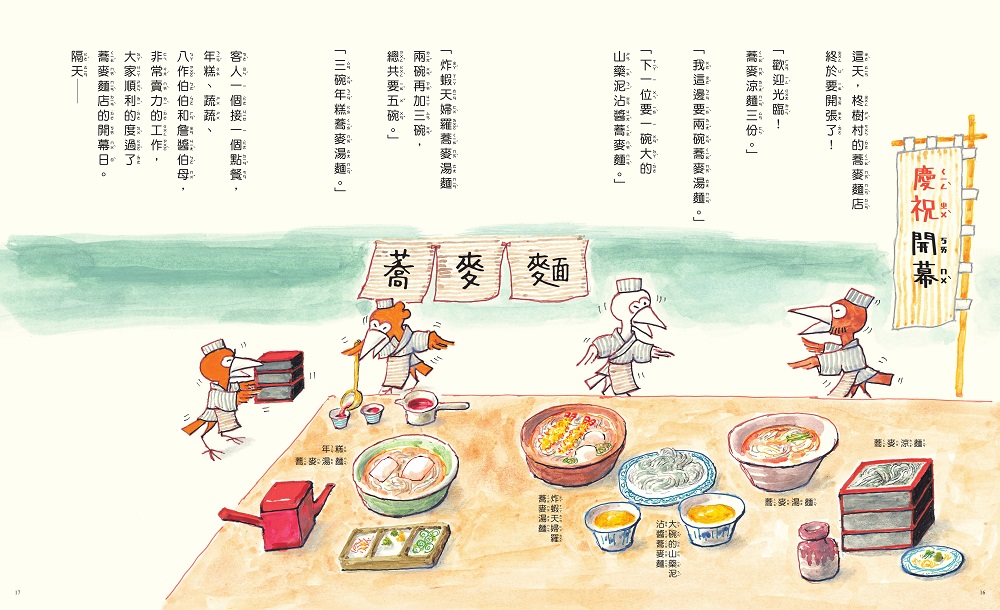 這天，柊樹村的蕎麥麵店
終於要開張了！
「歡迎光臨！
蕎麥涼麵三份。」
「我這邊要兩碗蕎麥湯麵。」
「下一位要一碗大的
山藥泥沾醬蕎麥麵。」
「炸蝦天婦羅蕎麥湯麵
兩碗再加三碗，
總共要五碗。」
「三碗年糕蕎麥湯麵。」
客人一個接一個點餐，
年糕、蔬蔬、
八作伯伯和詹醬伯母，
非常賣力的工作，
大家順利的度過了
蕎麥麵店的開幕日。
隔天——
慶祝開幕
ㄑㄧㄥˋ ㄓㄨˋ ㄎㄞ ㄇㄨˋ
蕎麥麵
蕎麥涼麵
蕎麥湯麵
大碗的山藥泥
沾醬蕎麥麵
炸蝦天婦羅
蕎麥湯麵
年糕
蕎麥湯麵
17
16